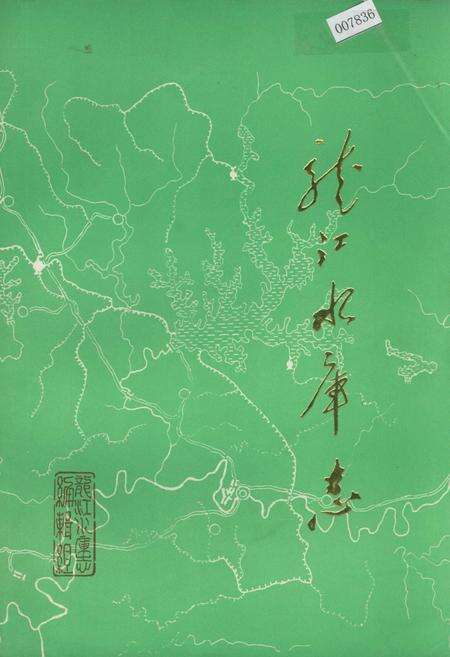 007836
龙江水库志
龍江水庫志
編輯組